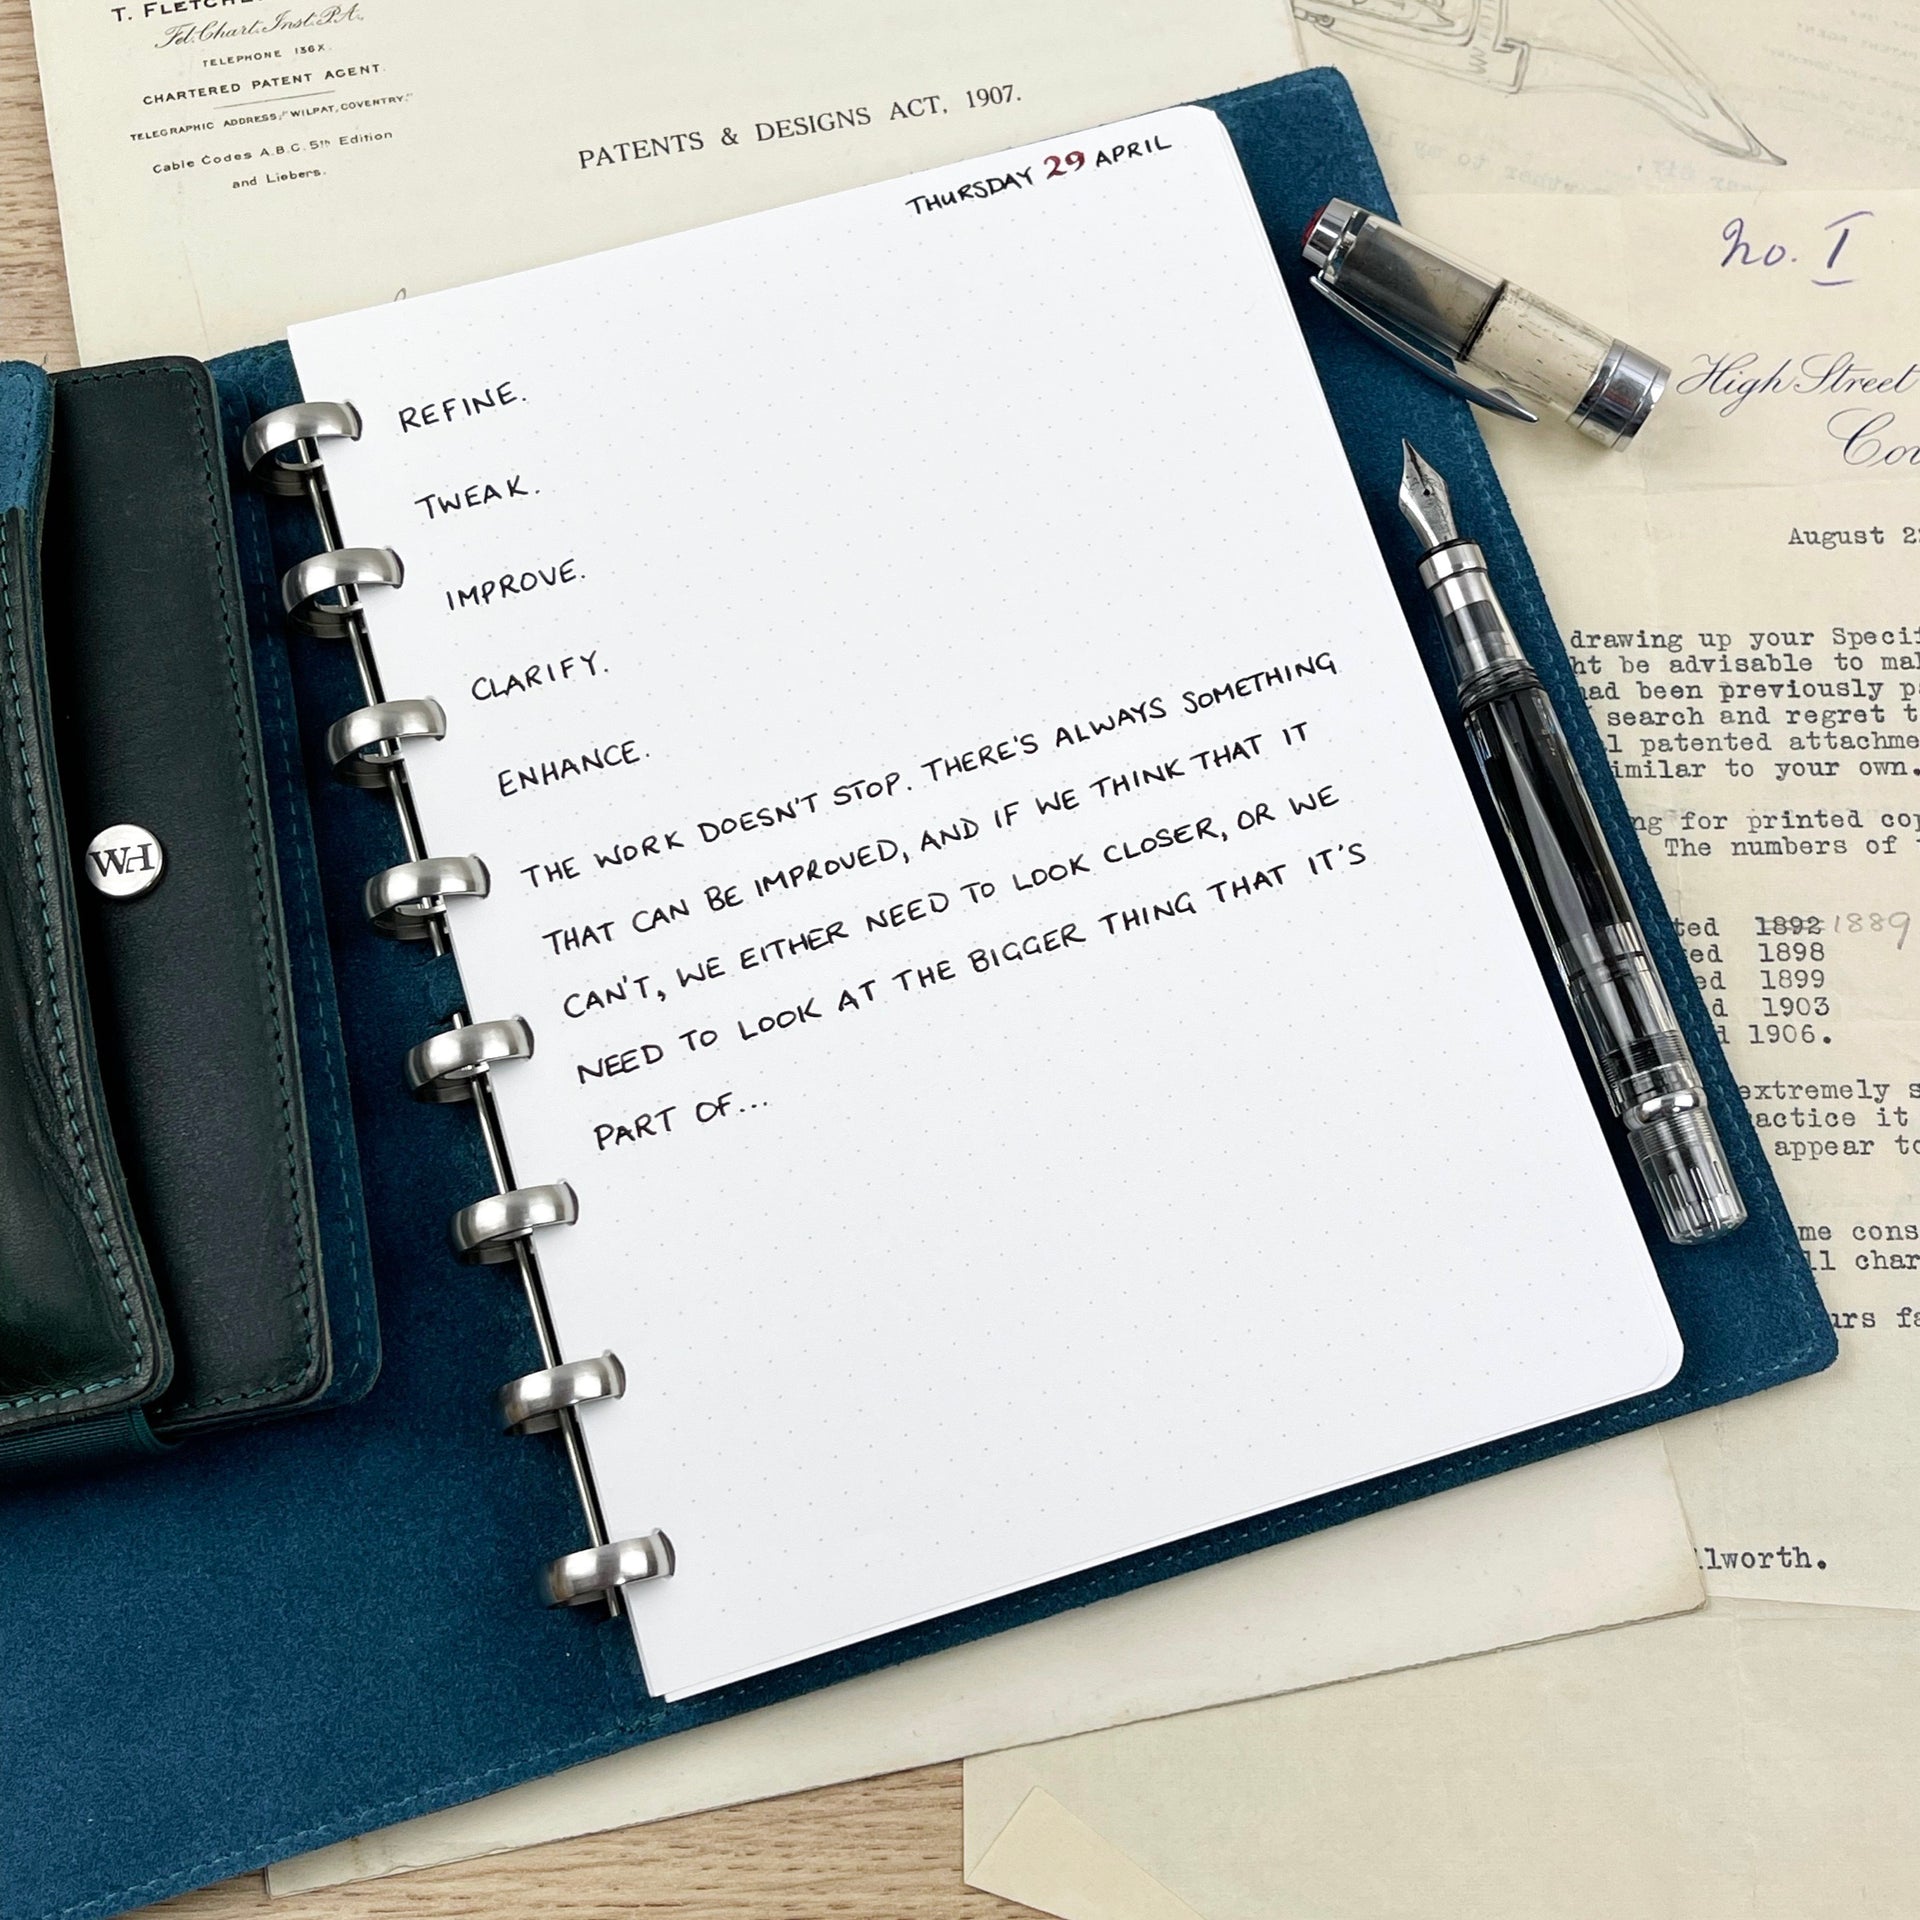 T. FLETCHE
Fel. Chart. Inst. P.A.
TELEPHONE 136X.
CHARTERED PATENT AGENT.
TELEGRAPHIC ADDRESS; "WILPAT, COVENTRY."
Cable Codes A.B.C. 5th Edition
and Liebers.
PATENTS & DESIGNS ACT, 1907.
THURSDAY 29 APRIL
REFINE.
TWEAK.
IMPROVE.
CLARIFY.
ENHANCE.
THE WORK DOESN'T STOP. THERE'S ALWAYS SOMETHING
THAT CAN BE IMPROVED, AND IF WE THINK THAT IT
CAN'T, WE EITHER NEED TO LOOK CLOSER, OR WE
NEED TO LOOK AT THE BIGGER THING THAT IT'S
PART OF...
WH
No. I
High Street
Cov
August 2
drawing up your Specif
ht be advisable to mak
had been previously p
search and regret t
l patented attachme
imilar to your own.
ng for printed cop
The numbers of
ted 1892 1889
ed 1898
ed 1899
d 1903
d 1906.
extremely s
actice it
appear to
me cons
ll char
urs fa
lworth.